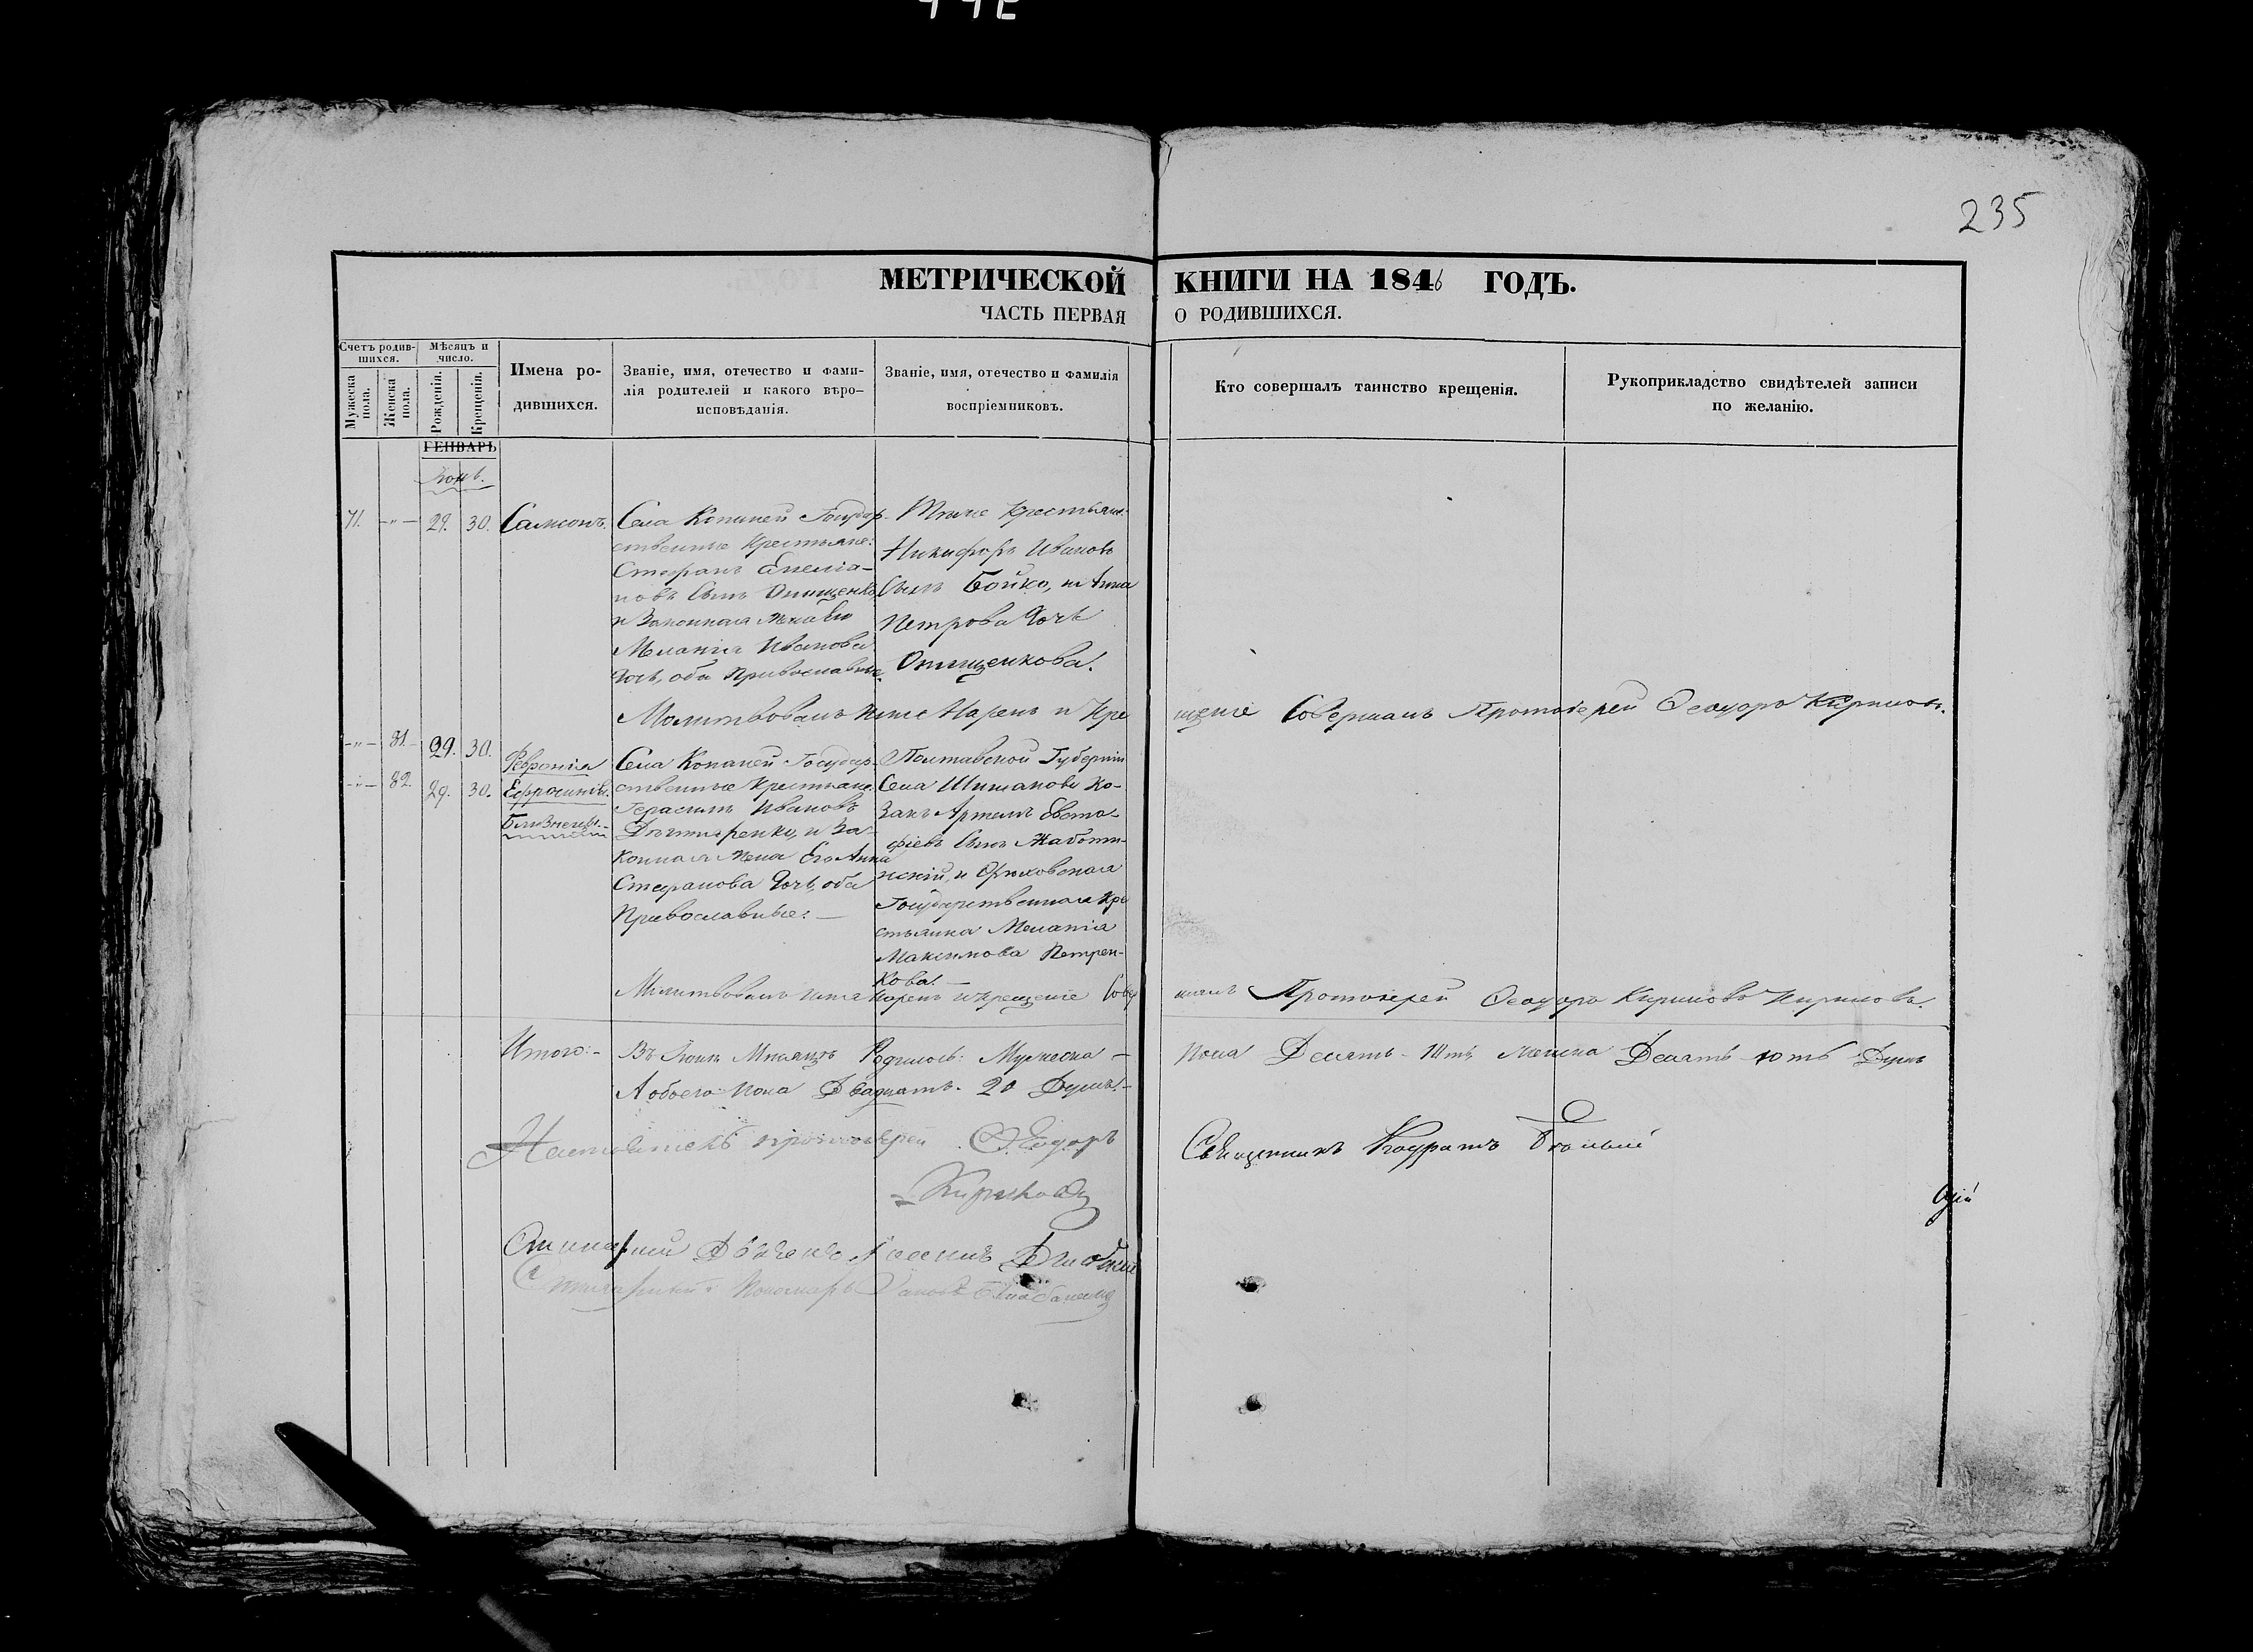 235
МЕТРИЧЕСКОЙ КНИГИ НА 1846 ГОДЪ.
ЧАСТЬ ПЕРВАЯ О РОДИВШИХСЯ.
Счетъ родив-
шихся.
Мѣсяцъ и
число.
Мужеска
пола.
Женска
пола.
Рожденія.
Крещенія.
Имена ро-
дившихся.
Званіе, имя, отечество и фами-
лія родителей и какого вѣро-
исповѣданія.
Званіе, имя, отечество и фамилія
воспріемниковъ.
Кто совершалъ таинство крещенія.
Рукоприкладство свидѣтелей записи
по желанію.
ГЕНВАРЬ
71. — " — 29. 30. Самсонъ.
Села Копаней Государ-
ственные Крестьяне:
Стефанъ Емелія-
новъ Сынъ Онищенко
и Законная Жена Его
Меланія Иванова
Дочь, оба Православные.
Крестьяне
Никифоръ Ивановъ
Сынъ Бойко, и Анна
Петрова Дочь
Онищенкова.
Молитвовалъ Имя Нарекъ и Кре
щеніе Совершалъ Протоіерей Ѳеодоръ Кириловъ.
— " — 81. 29. 30. Февронія
— " — 82. 29. 30. Ефросинія.
Близнецы.
Села Копаней Государ-
ственные Крестьяне.
Герасимъ Ивановъ
и За-
конная Жена Его Анна
Стефанова Дочь, оба
Православные:
Полтавской Губерніи
Села Шишаковъ Ко-
закъ Артемъ Евста-
фіевъ Сынъ Жаботин-
скій, и Орѣховская
Государственная Кре
стьянка Меланія
Максимова Петрен-
кова.
Молитвовалъ имя Нарекъ и Крещеніе Совер
шалъ Протоіерей Ѳеодоръ Кириловъ Кириловъ.
Итого:- Въ Іюнѣ Мѣсяцѣ Родилось: Мужеска —
пола Десять Женска Десять Душъ
А обоего пола Двадцать. 20 Душъ.
Настоятель протоіерей Ѳеодоръ
Кириловъ
Священникъ Кодратъ